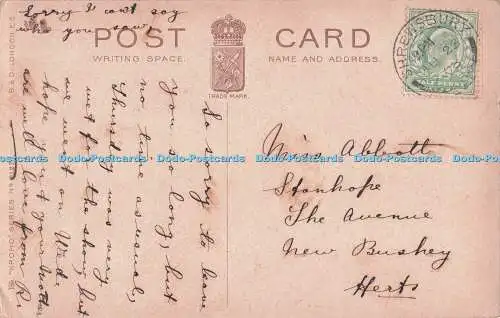 Sorry I can't say
who you saw.
POST CARD
WRITING SPACE.
NAME AND ADDRESS.
TRADE MARK.
SHREWSBURY
HALFPENNY
So sorry to leave
you so long, but
no time as usual,
Thursday was very
wet for the show, but
we went on Wed.
hope your Mother
are well love from
Miss Abbott
Stanhope
The Avenue
New Bushey
Herts
B. & D. LONDON E.C.
"KROMO" SERIES No
Dodo-Postcards Dodo-Postcards Dodo-Postcards Dodo-Postcards Dodo-Postcards